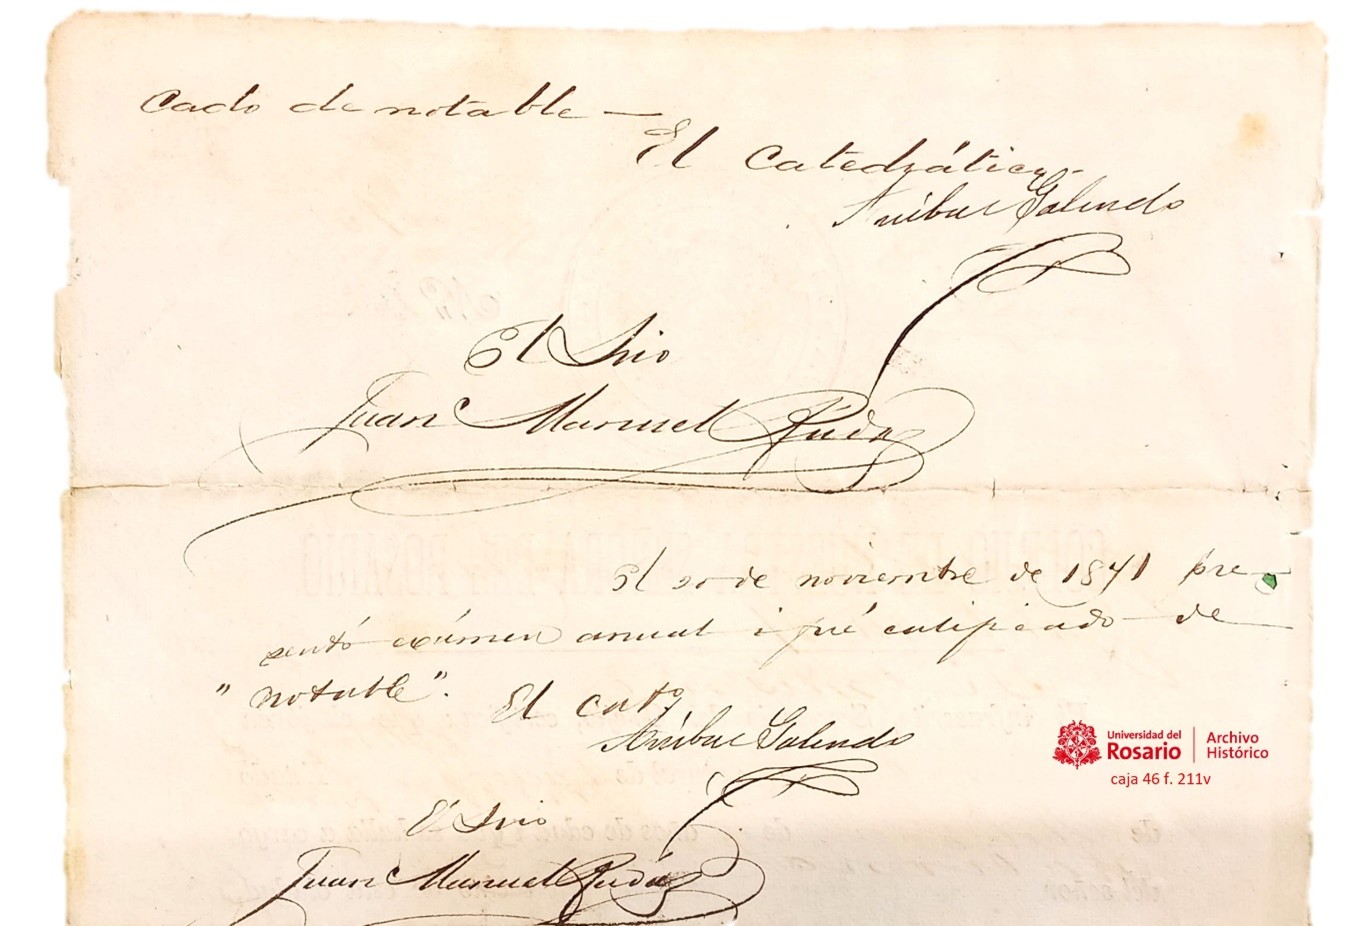 cado de notable —
El Catedrático
Aníbal Galindo
El Srio
Juan Manuel Rudas
El de noviembre de 1871 pre-
sentó exámen anual i fué calificado de
"notable". El cato
Aníbal Galindo
El Srio
Juan Manuel Rudas
COLEGIO DE NUESTRA SEÑORA DEL ROSARIO
Universidad del
Rosario
Archivo
Histórico
caja 46 f. 211v